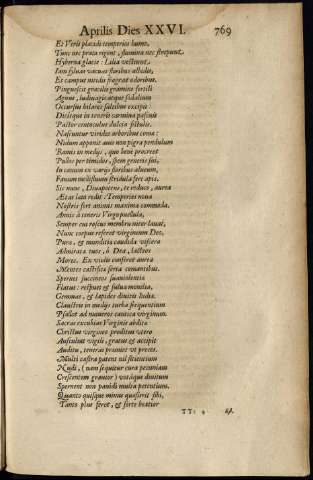 Aprilis Dies XXVI. 769
Et Veris placidi temperies humo.
Tunc nec prata rigent, flumina nec strepunt
Hyberna glacie: Lilia vestiunt
Iam sylvas vacuas floribus
Et campus medio fragrat odoribus.
Pinguescit gracilis gramine fertili
Agnus, ludimagis atque
Occursus hilares saltibus excipit
Dicitque in teneris carmina pascuis
Pastor dulcia fistulis.
Nascuntur virides arboribus coma:
Nidum apponit auis non pigra pendulum
Ramis in medijs, quo bene procreet
Pullos per timidos, spem generis sui,
In cauum ex varijs floribus alueum,
Fauum mellifluum stridula fert apis.
Sic nunc, Diua potens, te reduce, aurea
Ætas lata redit: Temperies noua
Nostris fert animis maxima commoda.
Annis à teneris Virguncula,
Semper cui roseus membra liquor lauat,
Nunc corpus referet virgineum Deo,
Pura, & munditia caudida viscera
Admirata tuos, ô Dea, lacteos
Mores. Ex violis conferet aurea
Mentes castifica serta comantibus.
Spernet succineos suauiolentia
Flatus: respuet & fulua monilia,
Gemmas, & lapides diuitis Indiæ.
Claustris in medijs turba sequentium
Psallet ad numeros cantica virginum.
Sacras excubias Virginis abdita
Christus virgineo proditus vtero
Auscultat vigili, gratus & accipit
Auditu, teneras promiet vt preces.
Multi castra patent nil sitientium
Nudi, (nam sequitur cura pecuniam
Crescentem grauior) votaque diuitum
Spernent non pauidi multa petentium.
Quanto quisque minus quæsierit sibi,
Tanto plus feret, & sorte beatior